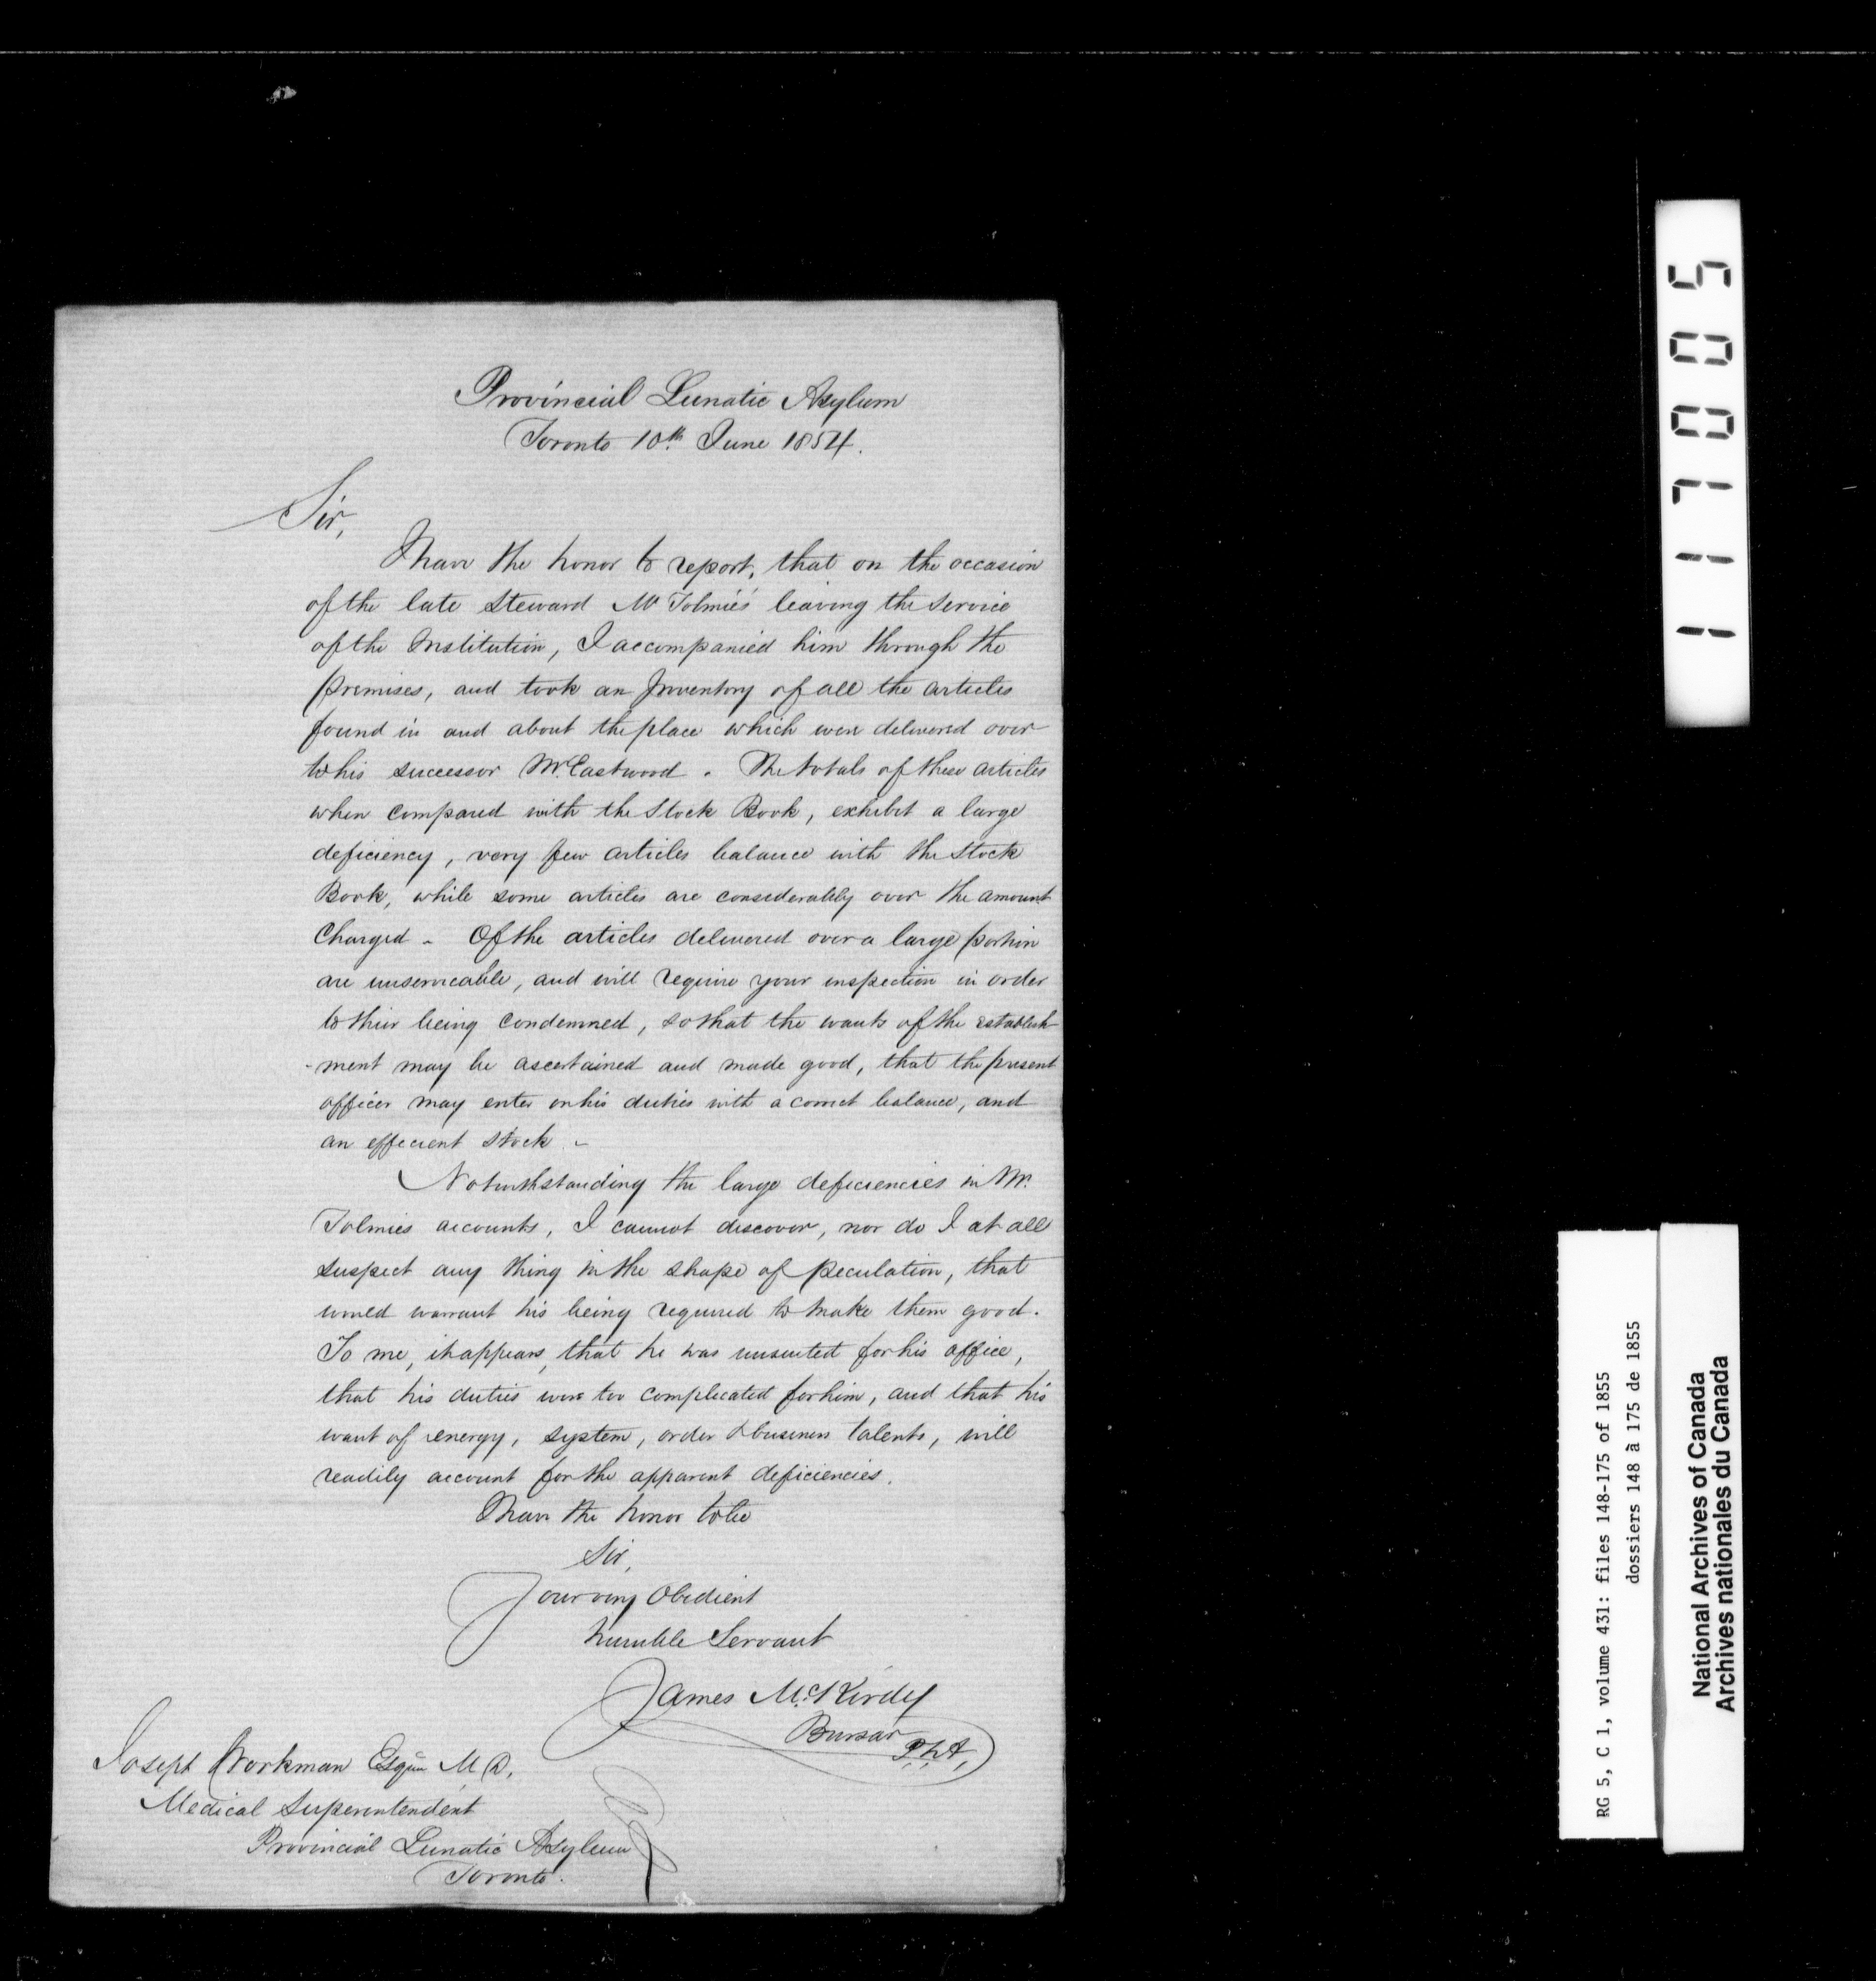 Provincial Lunatic Asylum
Toronto 10th June 1854.
Sir,
I have the honor to report, that on the occasion
of the late Steward Mr Tolmie's leaving the service
of the Institution, I accompanied him through the
premises, and took an Inventory of all the articles
found in and about the place which were delivered over
to his successor Mr. Eastwood. The totals of these articles
when compared with the Stock Book, exhibit a large
deficiency, very few articles balance with the Stock
Book, while some articles are considerably over the amount
Charged - Of the articles delivered over a large portion
are unservicable, and will require your inspection in order
to thier being Condemned, so that the wants of the establish-
-ment may be ascertained and made good, that the present
officer may enter on his duties with a correct balance, and
an efficient stock -
Notwithstanding the large deficiencies in Mr.
Tolmies accounts, I cannot discover, nor do I at all
suspect any thing in the shape of peculation, that
would warrant his being required to make them good.
To me, it appears, that he was unsuited for his office,
that his duties were too complicated for him, and that his
want of energy, system, order & business talents, will
readily account for the apparent deficiencies.
I have the honor to be
Sir,
Your very Obedient
humble Servant
James McKirdy
Bursar
P.L.A.
Joseph Workman Esqr M.D.
Medical Superintendent
Provincial Lunatic Asylum
Toronto.
117005
RG 5, C 1, volume 431: files 148-175 of 1855
dossiers 148 à 175 de 1855
National Archives of Canada
Archives nationales du Canada